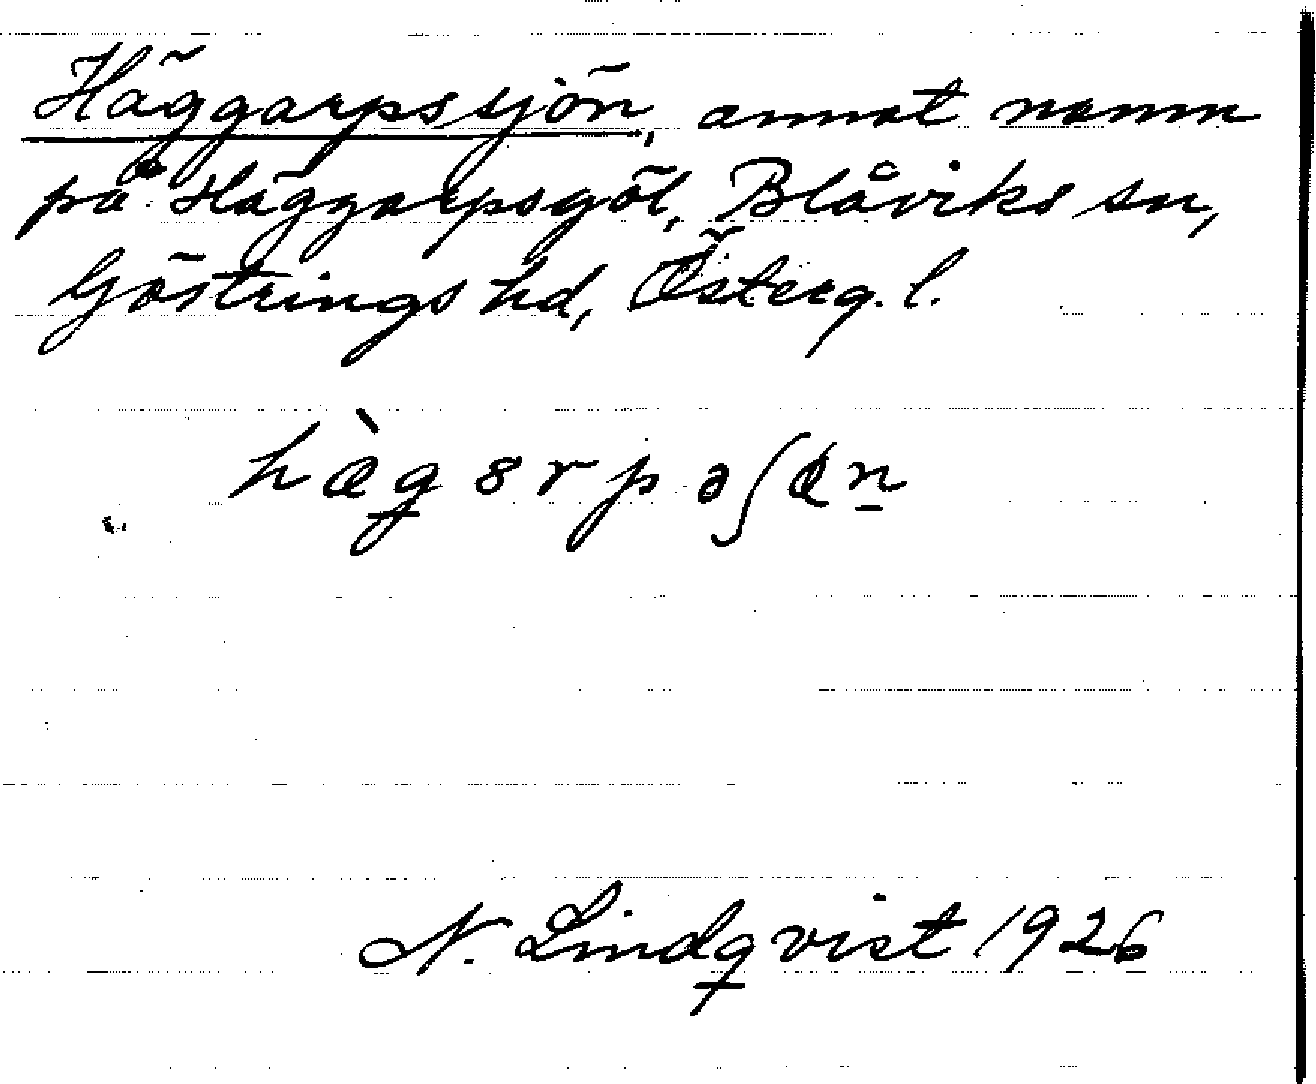 Häggarpssjön, annat namn
på Häggarpsgöl, Blåviks sn,
Göstrings hd, Österg. l.
N. Lindqvist 1926